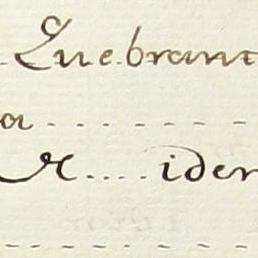 Quebrant
a - - - - - -
R.... iden